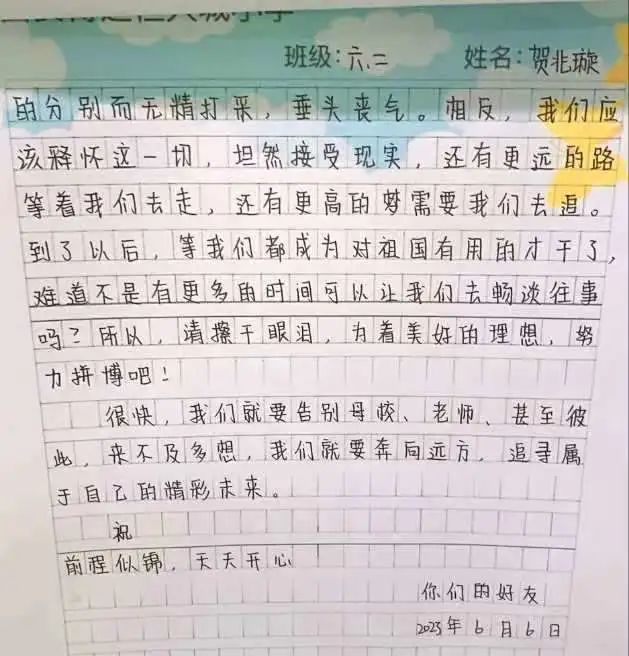 班级：六.二 姓名：贺兆璇
的分别而无精打采，垂头丧气。相反，我们应
该释怀这一切，坦然接受现实，还有更远的路
等着我们去走，还有更高的梦需要我们去追。
到了以后，等我们都成为对祖国有用的才干了，
难道不是有更多的时间可以让我们去畅谈往事
吗？所以，请擦干眼泪，为着美好的理想，努
力拼博吧！
很快，我们就要告别母校、老师、甚至彼
此，来不及多想，我们就要奔向远方，追寻属
于自己的精彩未来。
祝
前程似锦，天天开心
你们的好友
2023年6月6日